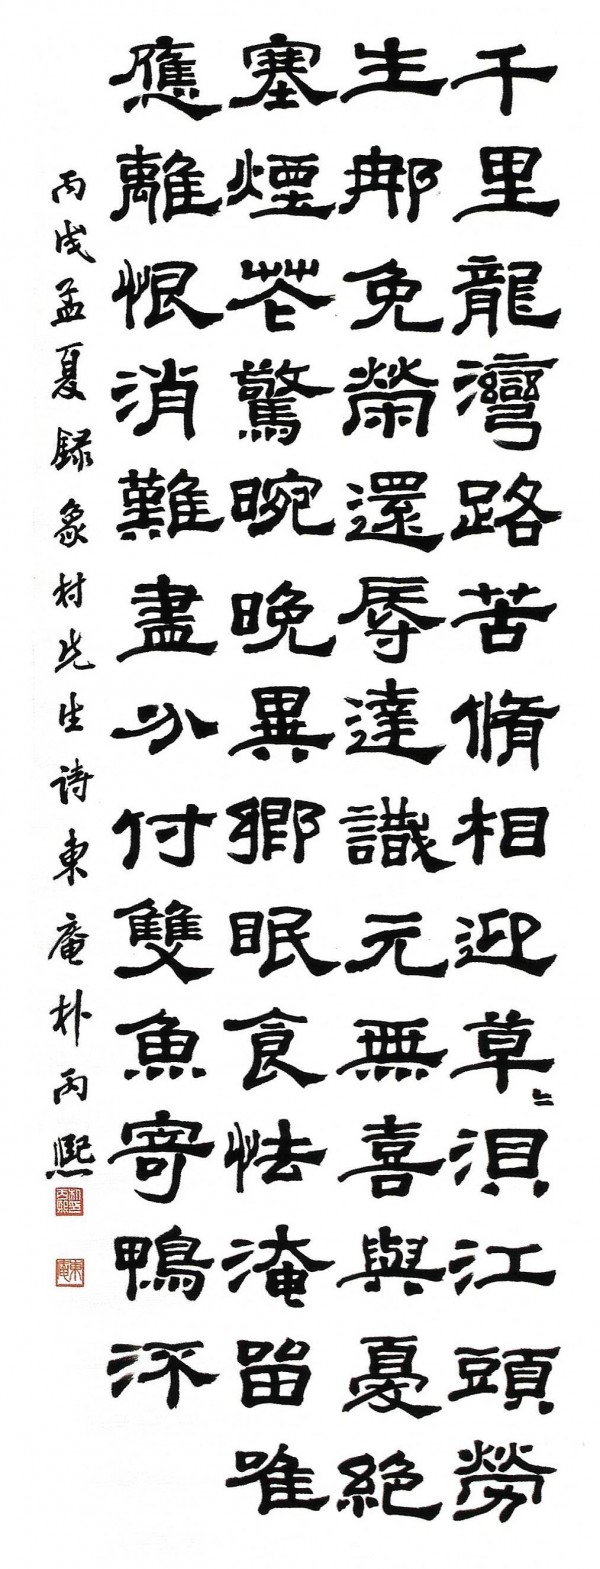 千里龍灣路苦脩相迎草〻浿江頭勞
生那免榮還辱達識元無喜與憂絶
塞煙花驚晼晚異鄉眠食怯淹留唯
應離恨消難盡分付雙魚寄鴨㳅
丙戌孟夏錄象村先生詩東庵朴丙熙